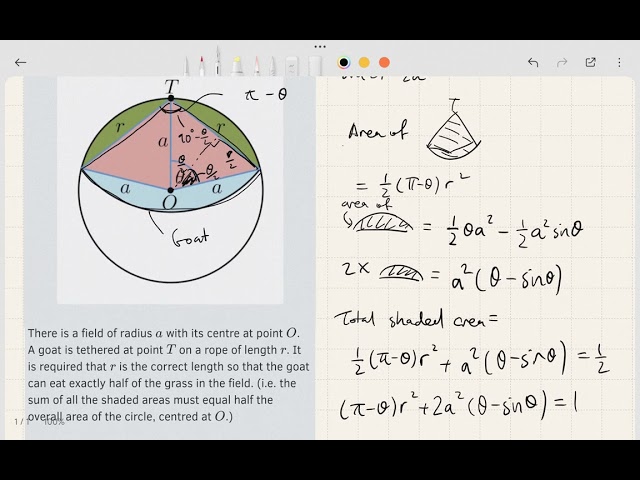 T
π - θ
r
r
a
90° - θ/2
θ/2
θ/2
r/2
a
a
O
Goat
There is a field of radius a with its centre at point O.
A goat is tethered at point T on a rope of length r. It
is required that r is the correct length so that the goat
can eat exactly half of the grass in the field. (i.e. the
sum of all the shaded areas must equal half the
overall area of the circle, centred at O.)
1 / 1 100%
T
Area of
= 1/2 (π-θ) r²
area of
= 1/2 θa² - 1/2 a² sinθ
2 × = a² (θ - sinθ)
Total shaded area =
1/2 (π-θ) r² + a² (θ - sinθ) = 1/2
(π-θ) r² + 2a² (θ - sinθ) = 1